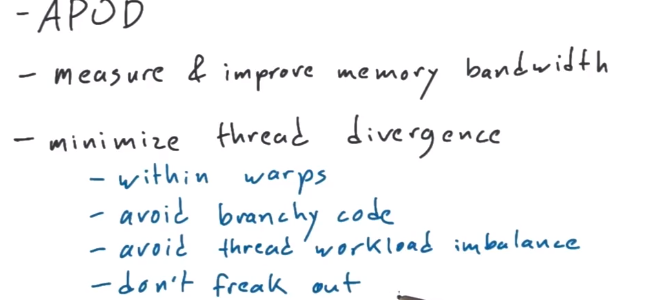 - APOD
- measure & improve memory bandwidth
- minimize thread divergence
- within warps
- avoid branchy code
- avoid thread workload imbalance
- don't freak out